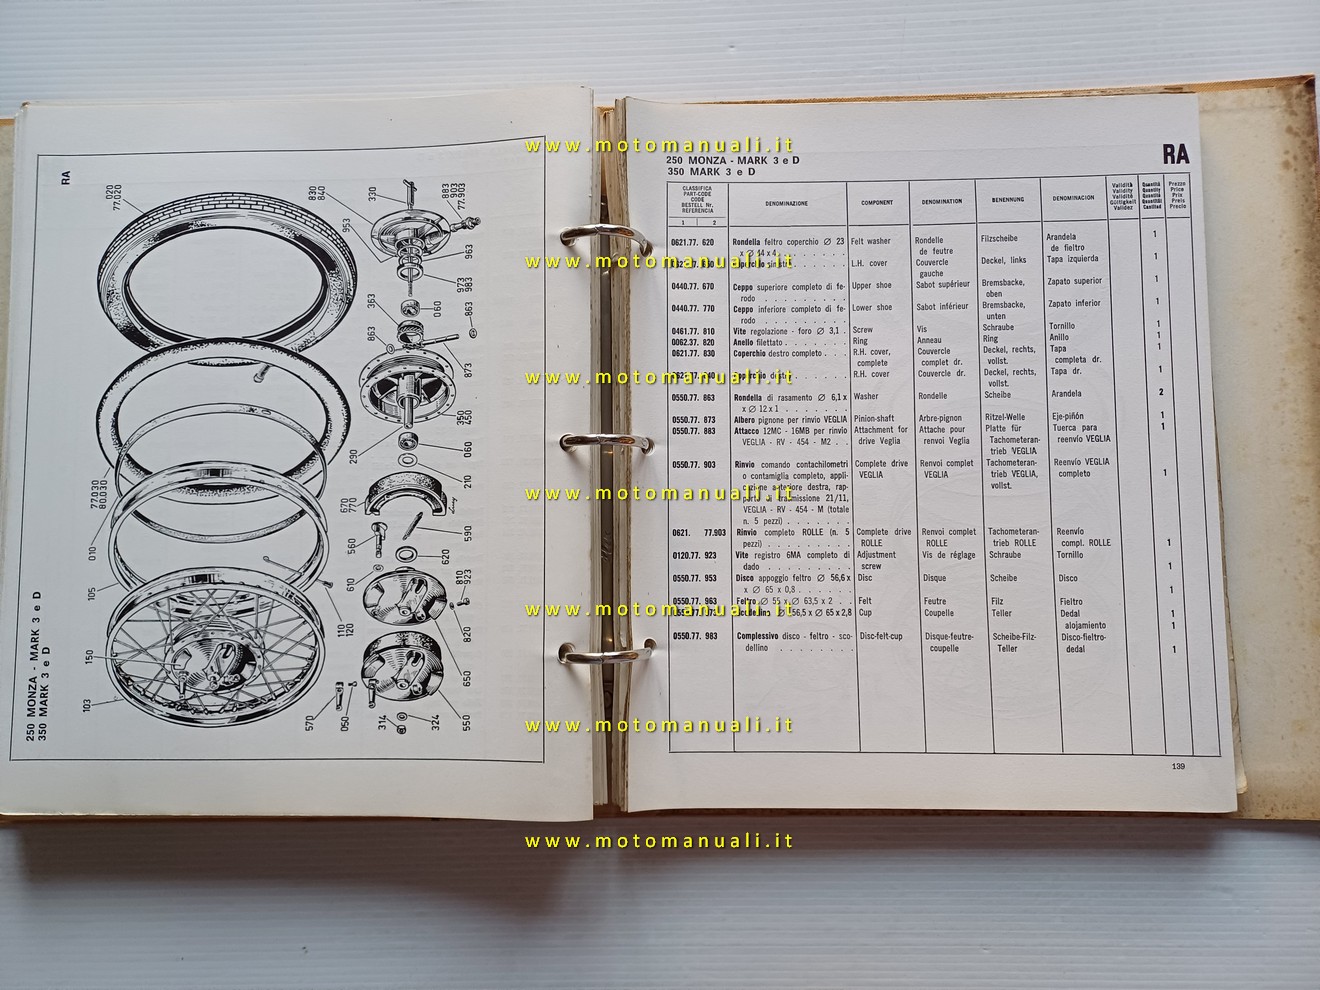 RA
250 MONZA - MARK 3 e D
350 MARK 3 e D
020
77.020
830
840
953
330
883
903
77.903
963
973
983
863
060
363
863
873
350
450
060
290
210
670
770
590
560
620
610
810
923
820
650
550
324
314
050
570
77.030
80.030
010
105
110
120
150
103
250 MONZA - MARK 3 e D
350 MARK 3 e D
RA
CLASSIFICA
PART-CODE
CODE
BESTELL Nr.
REFERENCIA
1 2
DENOMINAZIONE
COMPONENT
DENOMINATION
BENENNUNG
DENOMINACION
Validità
Validity
Validité
Gültigkeit
Validez
Quantità
Quantity
Quantité
Quantität
Cantidad
Prezzo
Price
Prix
Preis
Precio
0621.77. 620 Rondella feltro coperchio ∅ 23 Felt washer Rondelle Filzscheibe Arandela 1
x ∅ 34 x 4 . . . . . . . de feutre de fieltro
L.H. cover Couvercle Deckel, links Tapa izquierda 1
gauche
0440.77. 670 Ceppo superiore completo di fe- Upper shoe Sabot supérieur Bremsbacke, Zapato superior 1
rodo . . . . . . . . . oben
0440.77. 770 Ceppo inferiore completo di fe- Lower shoe Sabot inférieur Bremsbacke, Zapato inferior 1
rodo . . . . . . . . . unten
0461.77. 810 Vite regolazione - foro ∅ 3,1 . Screw Vis Schraube Tornillo 1
0062.37. 820 Anello filettato . . . . . . Ring Anneau Ring Anillo 1
0621.77. 830 Coperchio destro completo . . . R.H. cover, Couvercle Deckel, rechts, Tapa 1
complete complet dr. vollst. completa dr.
R.H. cover Couvercle dr. Deckel, rechts, Tapa dr. 1
vollst.
0550.77. 863 Rondella di rasamento ∅ 6,1 x Washer Rondelle Scheibe Arandela 2
x ∅ 12 x 1 . . . . . . .
0550.77. 873 Albero pignone per rinvio VEGLIA Pinion-shaft Arbre-pignon Ritzel-Welle Eje-piñón 1
0550.77. 883 Attacco 12MC - 16MB per rinvio Attachment for Attache pour Platte für Tuerca para 1
VEGLIA - RV - 454 - M2 . . drive Veglia renvoi Veglia Tachometeran- reenvío VEGLIA
trieb VEGLIA
0550.77. 903 Rinvio comando contachilometri Complete drive Renvoi complet Tachometeran- Reenvío VEGLIA
o contamiglia completo, appli- VEGLIA VEGLIA trieb VEGLIA, completo 1
cazione anteriore destra, rap- vollst.
porto di trasmissione 21/11,
VEGLIA - RV - 454 - M (totale
n. 5 pezzi) . . . . . . .
0621. 77.903 Rinvio completo ROLLE (n. 5 Complete drive Renvoi complet Tachometeran- Reenvío
pezzi) . . . . . . . . . ROLLE ROLLE trieb ROLLE compl. ROLLE 1
0120.77. 923 Vite registro 6MA completo di Adjustment Vis de réglage Schraube Tornillo
dado . . . . . . . . . screw 1
0550.77. 953 Disco appoggio feltro ∅ 56,6 x Disc Disque Scheibe Disco
x ∅ 65 x 0,8 . . . . . . 1
0550.77. 963 Feltro ∅ 55 x ∅ 63,5 x 2 . . Felt Feutre Filz Fieltro
∅ 56,5 x ∅ 65 x 2,8 Cup Coupelle Teller Dedal 1
alojamiento 1
0550.77. 983 Complessivo disco - feltro - sco- Disc-felt-cup Disque-feutre- Scheibe-Filz- Disco-fieltro-
dellino . . . . . . . . coupelle Teller dedal 1
139
www.motomanuali.it
www.motomanuali.it
www.motomanuali.it
www.motomanuali.it
www.motomanuali.it
www.motomanuali.it
www.motomanuali.it